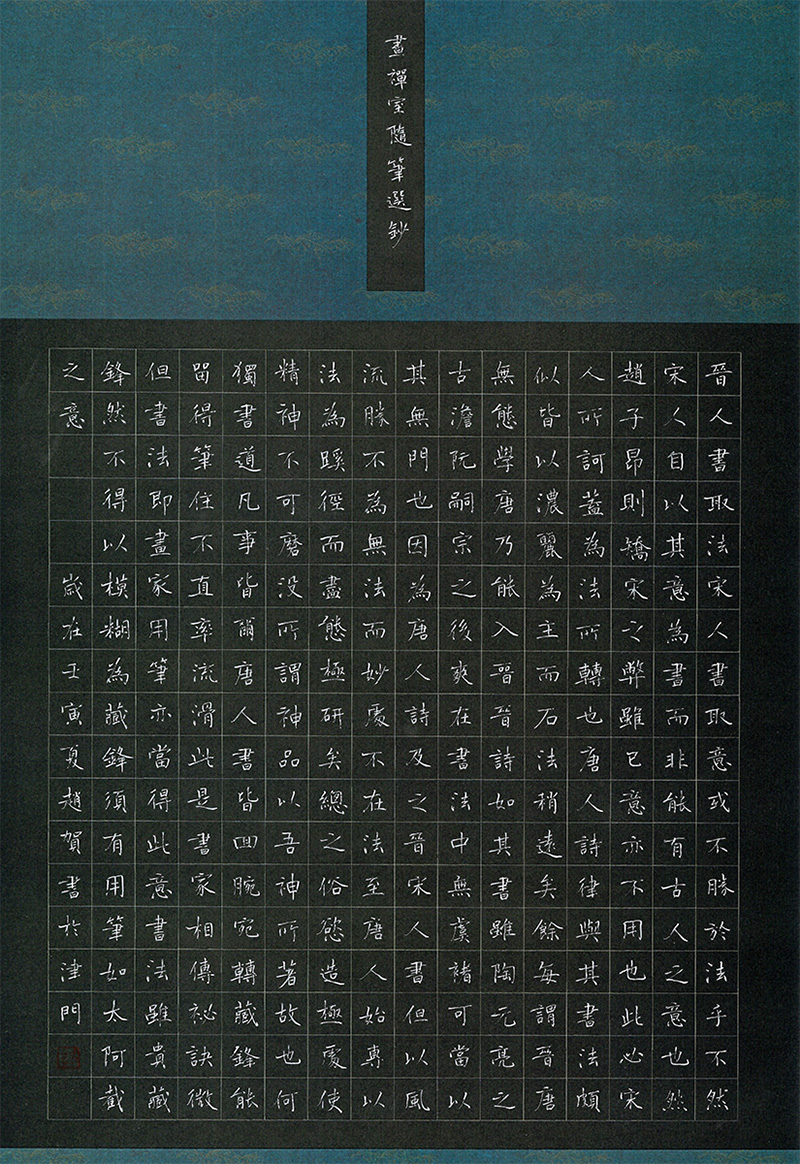 畫禪室隨筆選鈔
晉人書取法宋人書取意或不勝於法乎不然
宋人自以其意為書而非能有古人之意也然
趙子昂則矯宋之弊雖已意亦不用也此必宋
人所訶蓋為法所轉也唐人詩律與其書法頗
似皆以濃麗為主而石法稍遠矣餘每謂晉唐
無態學唐乃能入晉晉詩如其書雖陶元亮之
古澹阮嗣宗之後爽在書法中無虞褚可當以
其無門也因為唐人詩及之晉宋人書但以風
流勝不為無法而妙處不在法至唐人始專以
法為蹊徑而盡態極研矣總之俗慾造極處使
精神不可磨沒所謂神品以吾神所著故也何
獨書道凡事皆爾唐人書皆回腕宛轉藏鋒能
留得筆住不直率流滑此是書家相傳祕訣微
但書法即畫家用筆亦當得此意書法雖貴藏
鋒然不得以模糊為藏鋒須有用筆如太阿截
之意 歲在壬寅夏趙賀書於津門